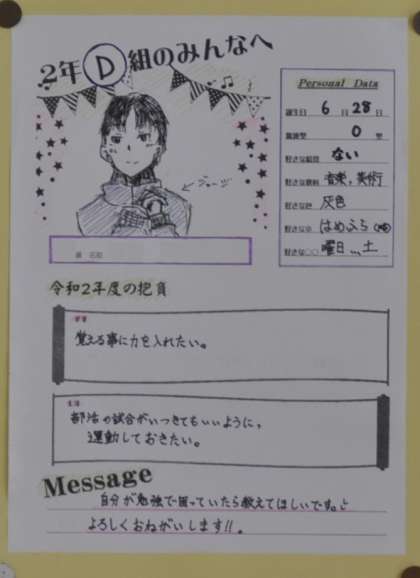 2年D組のみんなへ
Personal Data
誕生日 6月28日
血液型 O型
好きな給食 ない
好きな教科 音楽,美術
好きな色 灰色
好きな本 はめふら
好きな○○ 曜日...土
ジャージ
令和2年度の抱負
学習
覚える事に力を入れたい。
生活
部活の試合がいつきてもいいように、
運動しておきたい。
Message
自分が勉強で困っていたら教えてほしいです。
よろしくおねがいします!!。